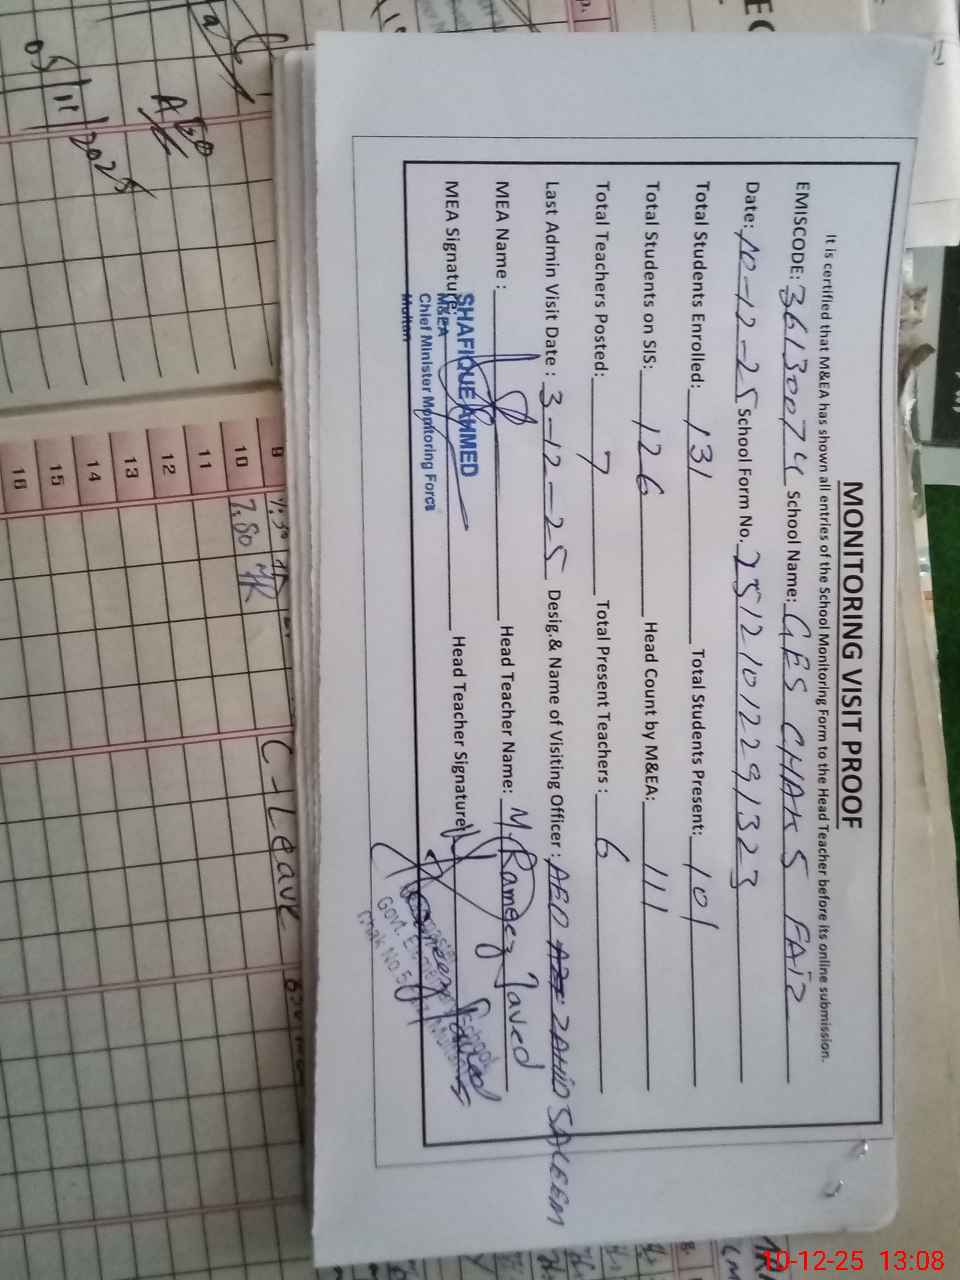 MONITORING VISIT PROOF
It is certified that M&EA has shown all entries of the School Monitoring Form to the Head Teacher before its online submission.
EMISCODE: 36130074 School Name: GES CHAK 5 FAIZ
Date: 10-12-25 School Form No. 25121012291323
Total Students Enrolled: 131 Total Students Present: 101
Total Students on SIS: 126 Head Count by M&EA: 111
Total Teachers Posted: 7 Total Present Teachers : 6
Last Admin Visit Date : 3-12-25 Desig.& Name of Visiting Officer : AEO ZAHID SALEEM
MEA Name : Head Teacher Name: M. Rameez Javed
MEA Signature: Head Teacher Signature
SHAFIQUE AHMED
M&EA
Chief Minister Monitoring Force
Multan
Rameez Javed
05/11/2025
AEO
9
10 7:50
11
12
13
14
15
16
C-Leave
10-12-25 13:08